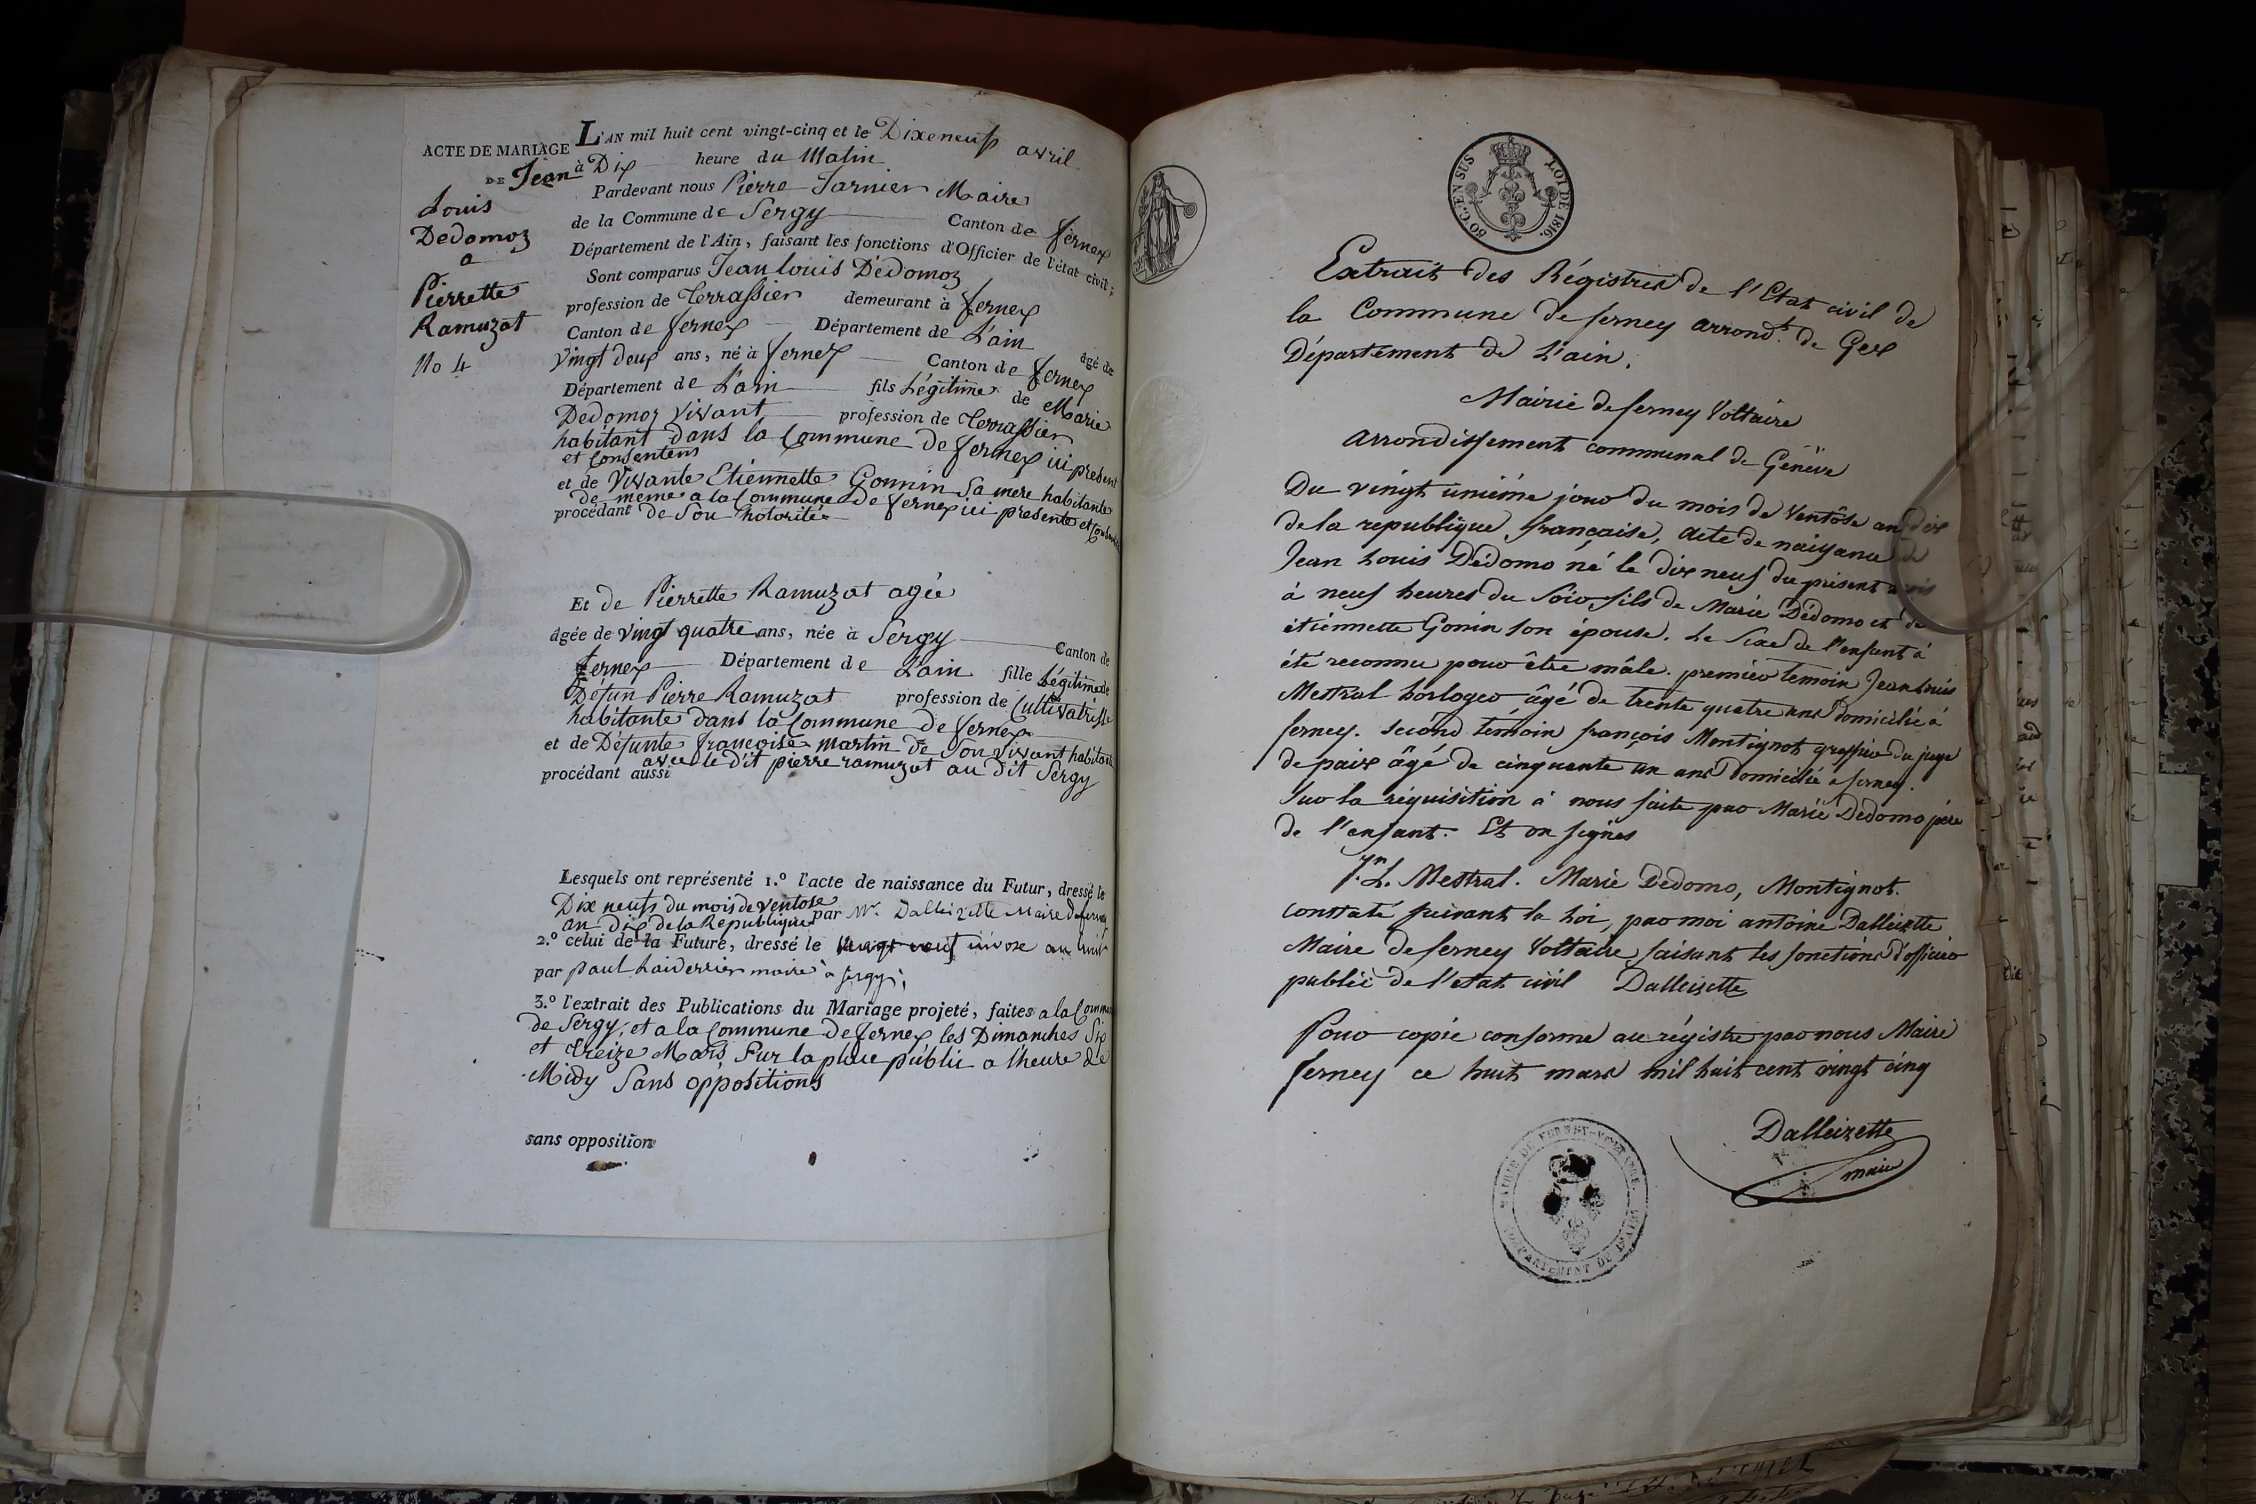 ACTE DE MARIAGE
DE Jean
Louis
Dedomoz
a
Pierrette
Ramuzat
No 4
L'AN mil huit cent vingt-cinq et le Dixeneuf avril
à Dix heure du Matin
Pardevant nous Pierre Jarnier Maire
de la Commune de Sergy Canton de fernex
Département de l'Ain, faisant les fonctions d'Officier de l'état civil;
Sont comparus Jean louis Dédomoz
profession de Terrassier demeurant à fernex
Canton de fernex Département de L'ain âgé de
vingt deux ans, né à fernex Canton de fernex
Département de L'ain fils Légitime de Marie
Dedomoz vivant profession de Terrassier
habitant dans la Commune de fernex ici present
et Consentens
et de Vivante Etiennette Gonnin Sa mere habitante
de meme a la Commune de fernex ici presente et
procédant de Son hotoritée
Et de Pierrette Ramuzat agée
âgée de vingt quatre ans, née à Sergy Canton de
fernex Département de Lain fille Légitime de
Défun Pierre Ramuzat profession de
habitante dans la Commune de fernex
et de Défunte françoise martin de Son vivant habitante
avec le dit pierre ramuzat au dit Sergy
procédant aussi
Lesquels ont représenté 1.º l'acte de naissance du Futur, dressé le
Dix neufs du mois de ventose
an Dix de la Republique par Mr. Dalleizette Maire de ferney
2.º celui de la Future, dressé le nivose an huit
par paul maire à sergy;
3.º l'extrait des Publications du Mariage projeté, faites a la Commune
de Sergy, et a la Commune de fernex les Dimanches Six
et treize Mars Sur la place public a l'heure de
Midy Sans oppositions
sans opposition
60 C. EN SUS
LOI DE 1816.
Extrait des Régistres de l'Etat civil de
la Commune de ferney arrond.t de Gex
Département de L'ain.
Mairie de ferney Voltaire
arrondissement communal de Genève
Du vingt unième jour du mois de Ventôse an dix
de la republique française, acte de naissance de
Jean Louis Dédomo né le dix neuf du présent mois
à neuf heures du soir, fils de Marie Dédomo et de
étiennette Gonin son épouse. Le sexe de l'enfant à
été reconnu pour être mâle. premier temoin Jean Louis
Mestral horloger âgé de trente quatre ans domicilié à
ferney. Second temoin françois Montignot greffier du juge
de paix âgé de cinquante un ans domicilié a ferney.
Sur la réquisition à nous faite par Marie Dedomo père
de l'enfant. Et on signés
Jn L. Mestral. Marie Dedomo, Montignot.
constaté suivant la Loi, par moi antoine Dalleizette
Maire de ferney Voltaire faisant les fonctions d'officier
public de l'etat civil Dalleizette
Pour copie conforme au régistre par nous Maire
ferney ce huit mars mil huit cent vingt cinq
Dalleizette
maire
MAIRIE DE FERNEY-VOLTAIRE.
DÉPARTEMENT DE L'AIN